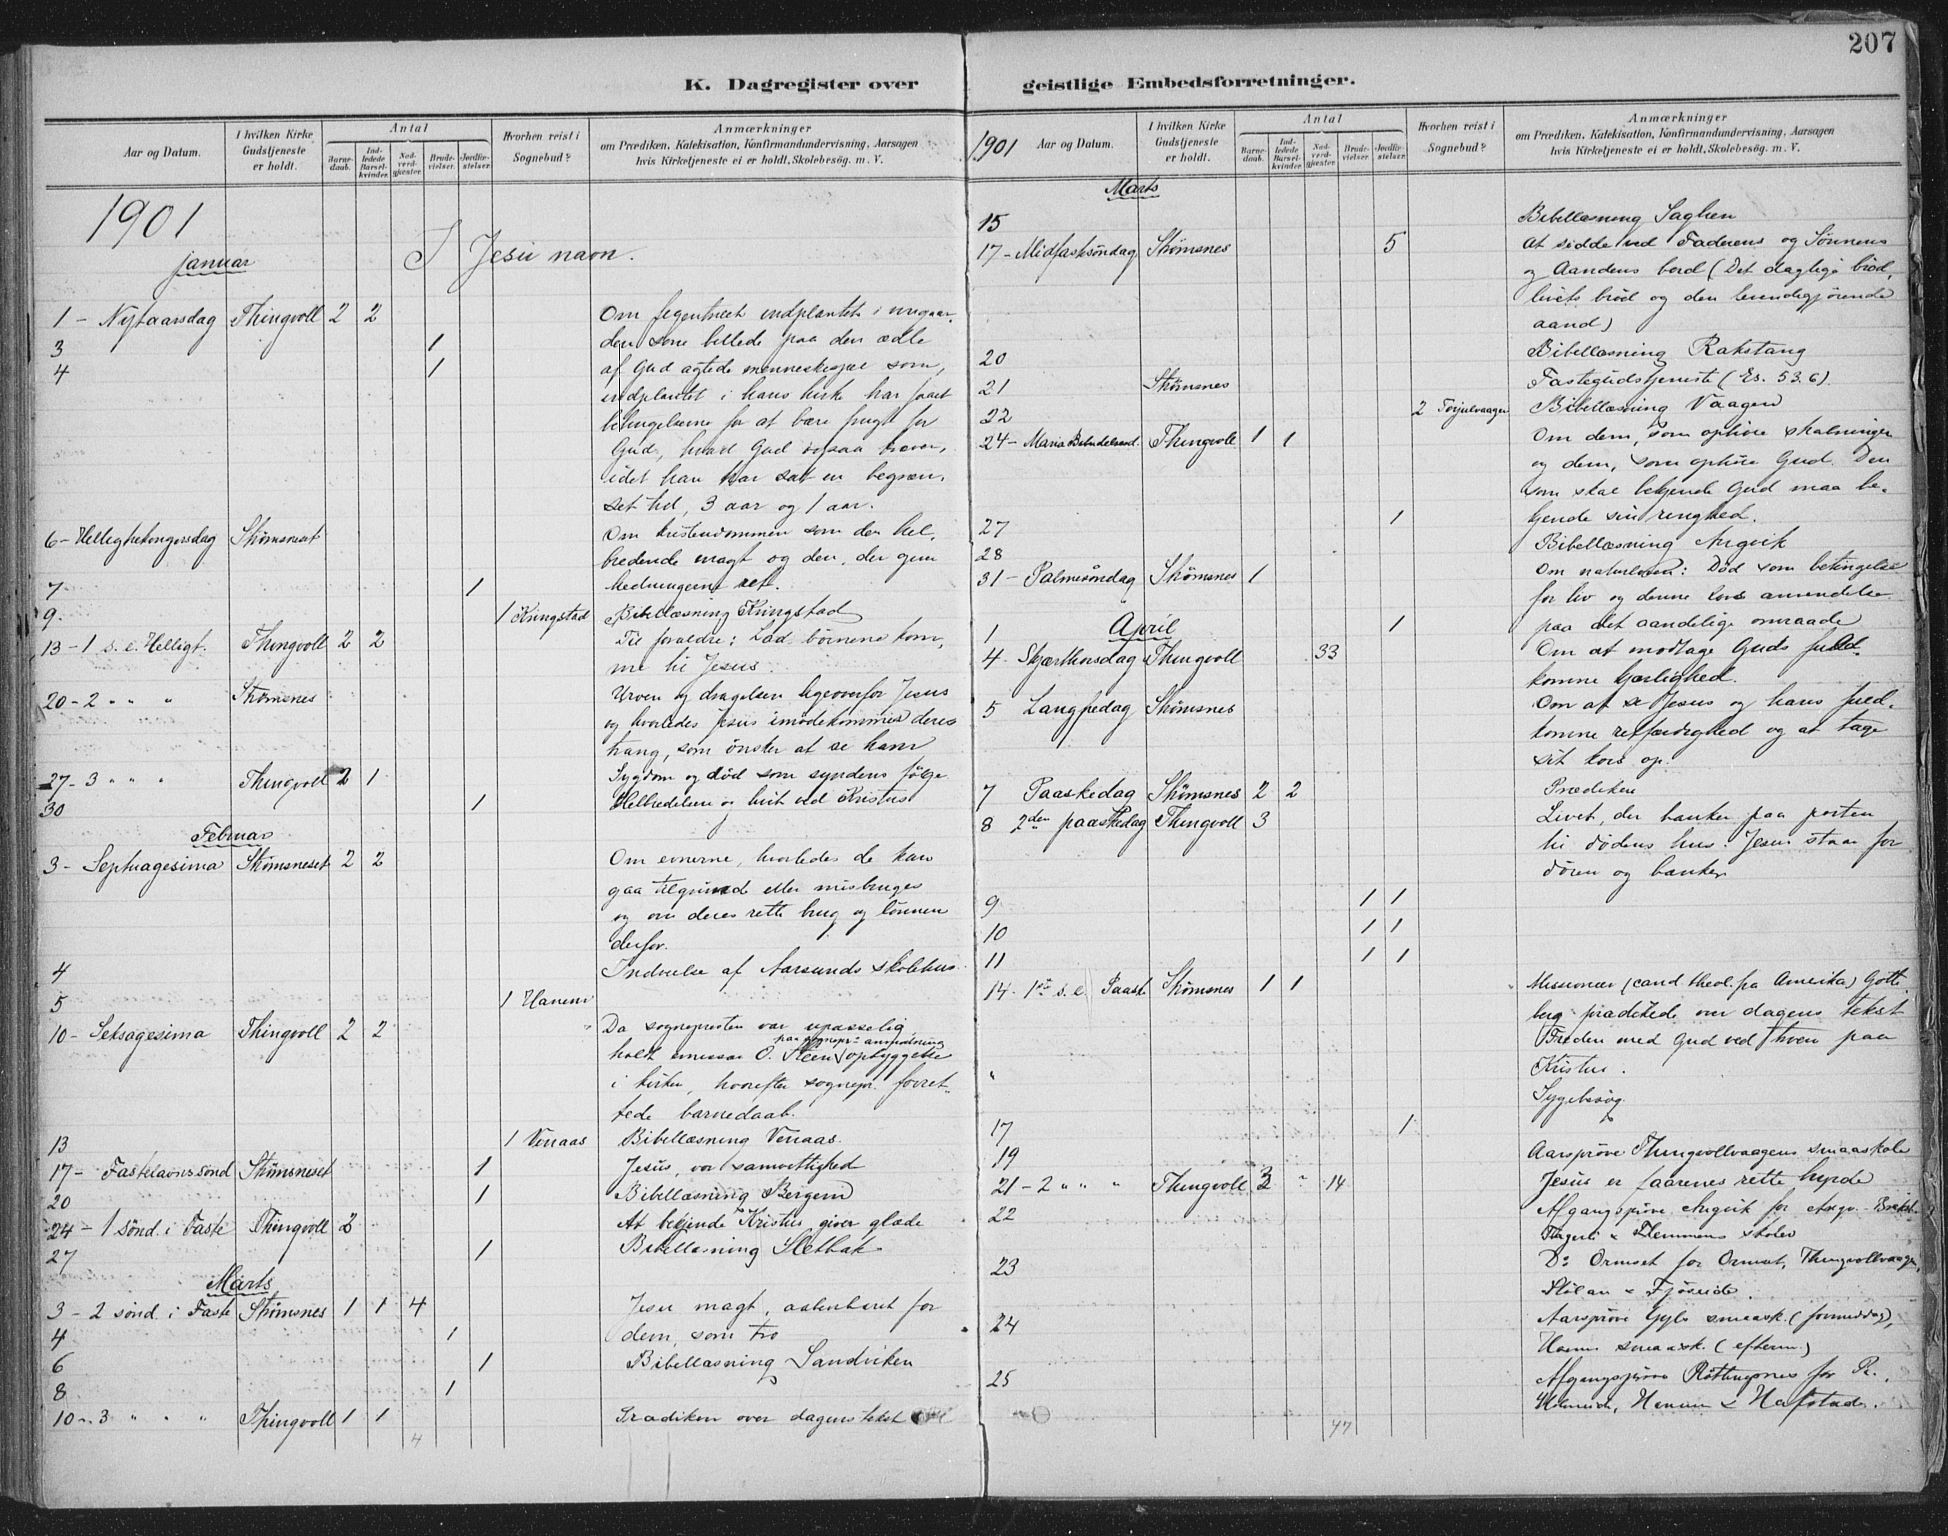 207
K. Dagregister over geistlige Embedsforretninger.
Aar og Datum.
I hvilken Kirke Gudstjeneste er holdt.
Antal
Barnedaab.
Indledede Barselkvinder.
Nadverdgjester.
Brudevielser.
Jordfæstelser.
Hvorhen reist i Sognebud?
Anmærkninger
om Prædiken, Katekisation, Konfirmandundervisning, Aarsagen
hvis Kirketjeneste ei er holdt, Skolebesøg. m. V.
1901
I Jesu navn.
Januar
1 - Nytaarsdag Thingvoll 2 2 Om figentræet indplantet i vingaar-
3 1 den som billede paa den ædle
4 1 af Gud agtede menneskesjæl som,
indplantet i hans kirke har faaet
betingelserne for at bære frugt for
Gud, hvad Gud ogsaa kræver,
idet han har sat en begræn-
set tid, 3 aar og 1 aar.
6 - Helligtrekongersdag Strømsneset Om kristendommen som den hel
bredende magt og den, der gjør
7 1 hedningerne ret.
9. 1 Kringstad Bibellæsning Kringstad
13 - 1 s. e. Helligt. Thingvoll 2 2 Til forældre: Lad børnene kom
me til Jesus
20 - 2 " " " Strømsnes Urven og dragelsen ligeoverfor Jesus
og hvorledes Jesus imødekommer deres
trang, som ønsker at se ham
27 - 3 " " " Thingvoll 2 1 Sygdom og død som syndens følge
30 1 Helbredelsen og livet ved Kristus
Februar
3 - Septuagesima Strømsneset 2 2 Om evnerne, hvorledes de kan
gaa tilgrunde eller misbruges
og om deres rette brug og lønnen
derfor.
4 Indvielse af Aarsunds skolehus.
5 1 Hanem
10 - Seksagesima Thingvoll 2 2 Da sognepresten var upasselig,
paa sognepr's anmodning
holdt emissær O. Steen opbyggelse
i kirken, hvorefter sognepr. forret-
tede barnedaab.
13 1 Venaas Bibellæsning Venaas.
17 - Fastelavnssønd Strømsneset 1 Jesus, vor samvittighed
20 1 Bibellæsning Bergem
24 - 1 sønd. i Faste Thingvoll 2 At bekjende Kristus giver glæde
27 1 Bibellæsning Sletbak
Marts
3 - 2 sønd. i Faste Strømsnes 1 1 4 Jesu magt, aabenbaret for
4 1 dem, som tro
6 1 Bibellæsning Sandviken
8 1
10 - 3 " " " Thingvoll 1 1 Prædiken over dagens tekst
4
1901
Aar og Datum.
I hvilken Kirke Gudstjeneste er holdt.
Antal
Barnedaab.
Indledede Barselkvinder.
Nadverdgjester.
Brudevielser.
Jordfæstelser.
Hvorhen reist i Sognebud?
Anmærkninger
om Prædiken, Katekisation, Konfirmandundervisning, Aarsagen
hvis Kirketjeneste ei er holdt, Skolebesøg. m. V.
Marts
15 Bibellæsning Saghen
17 - Midfastsøndag Strømsnes 5 At sidde ved Faderens og Sønnens
og Aandens bord (Det daglige brød,
livets brød og den levendegjørende
aand)
20 Bibellæsning Rakstang
21 Strømsnes Fastegudstjeneste (Es. 53.6)
22 2 Torjulvaagen Bibellæsning Vaagen
24 - Maria Bebudelsesd. Thingvoll 1 1 Om dem, som ophøie skabninger
og dem, som ophøie Gud. Den
som skal bekjende Gud maa be-
27 1 kjende sin ringhed.
28 Bibellæsning Angvik
31 - Palmesøndag Strømsnes 1 Om naturloven: Død som betingelse
for liv og denne lovs anvendelse
April
1 1 paa det aandelige omraade
4 Skjærthorsdag Thingvoll 33 Om at modtage Guds fuld-
komne kjærlighed.
5 Langfredag Strømsnes Om at se Jesus og hans fuld-
komne retfærdighed og at tage
sit kors op.
7 Paaskedag Strømsnes 2 2 Prædiken
8 2den paaskedag Thingvoll 3 Livet, der banker paa porten
til dødens hus. Jesus staar for
døren og banker
9 1 1
10 1 1
11 1 1
14 - 1ste s. e. Paaske Strømsnes 1 1 Missionær (cand. theol. fra Amerika) Gott
berg prædikede over dagens tekst
Freden med Gud ved troen paa
" Kristus.
Sygebesøg.
17 1
19 Aarsprøve Thingvollvaagens smaaskole
21 - 2 " " " Thingvoll 3 " 14 Jesus er faarenes rette hyrde
22 Afgangsprøve Angvik for Angv. Breksl
Fagerli & Flemmens skoler
23 Do Ormset for Ormset, Thingvollvaagen,
Stølan & Fjøseide.
24 Aarsprøve Gyls smaask. (formiddag),
Hoems smaask. (efterm.)
25 Afgangsprøve Røttingsnes for R.,
Holmeide, Hanem & Hafstads.
47